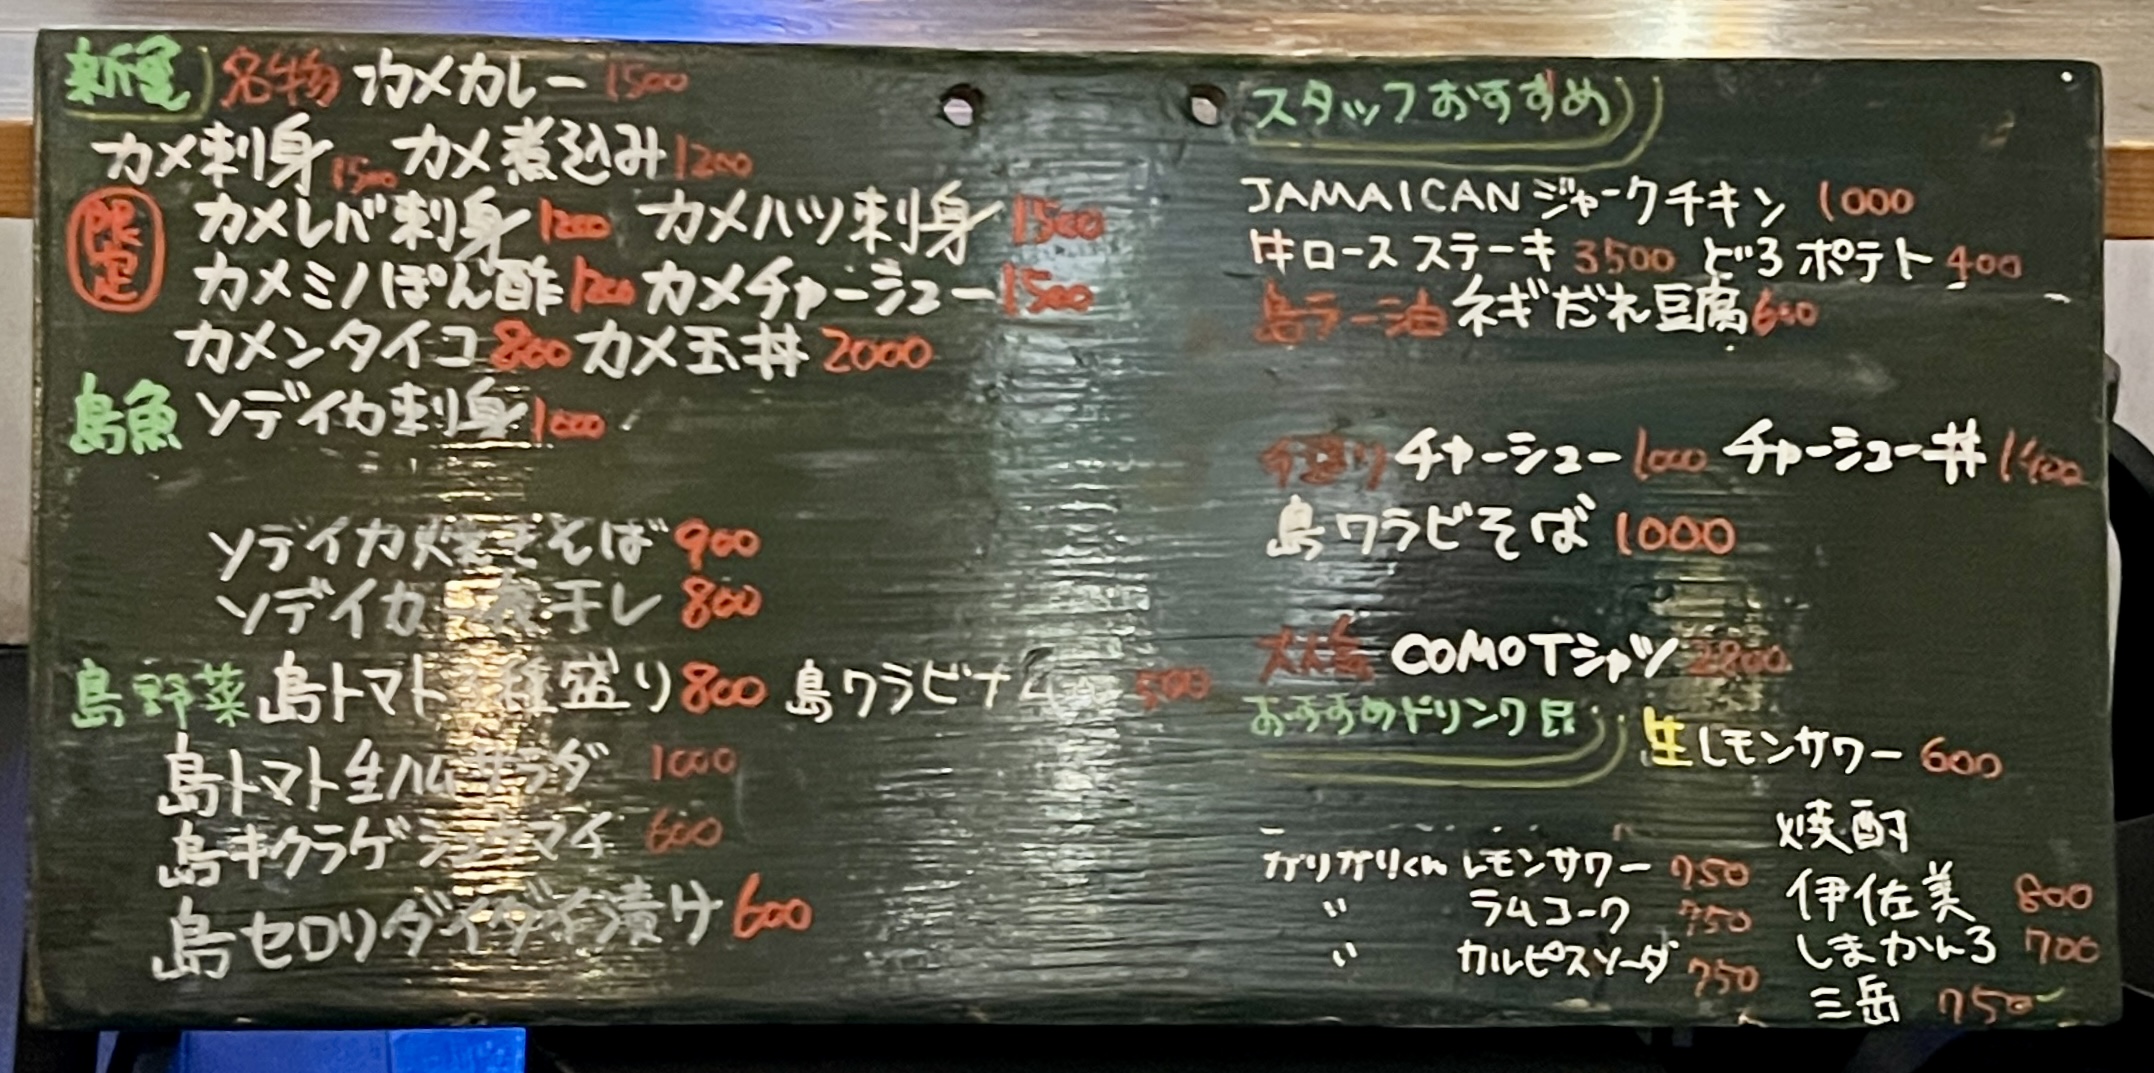 名物 カメカレー 1500
カメ刺身 1500 カメ煮込み 1200
限定
カメレバ刺身 1200 カメハツ刺身 1500
カメミノぽん酢 1200 カメチャーシュー 1500
カメンタイコ 800 カメ玉丼 2000
島魚 ソデイカ刺身 1000
ソデイカ焼きそば 900
ソデイカ 夜干し 800
島野菜 島トマト 種盛り 800 島ワラビナムル 500
島トマト生ハムサラダ 1000
島キクラゲシュウマイ 600
島セロリダイダイ漬け 600
スタッフおすすめ
JAMAICANジャークチキン 1000
牛ロースステーキ 3500 どろポテト 400
島ラー油 ネギだれ豆腐 600
チャーシュー 1000 チャーシュー丼 1400
島ワラビそば 1000
大人気 COMO Tシャツ 2800
おすすめドリンク
生レモンサワー 600
ガリガリくん レモンサワー 750
〃 ラムコーク 750
〃 カルピスソーダ 750
焼酎
伊佐美 800
しまかんろ 700
三岳 750